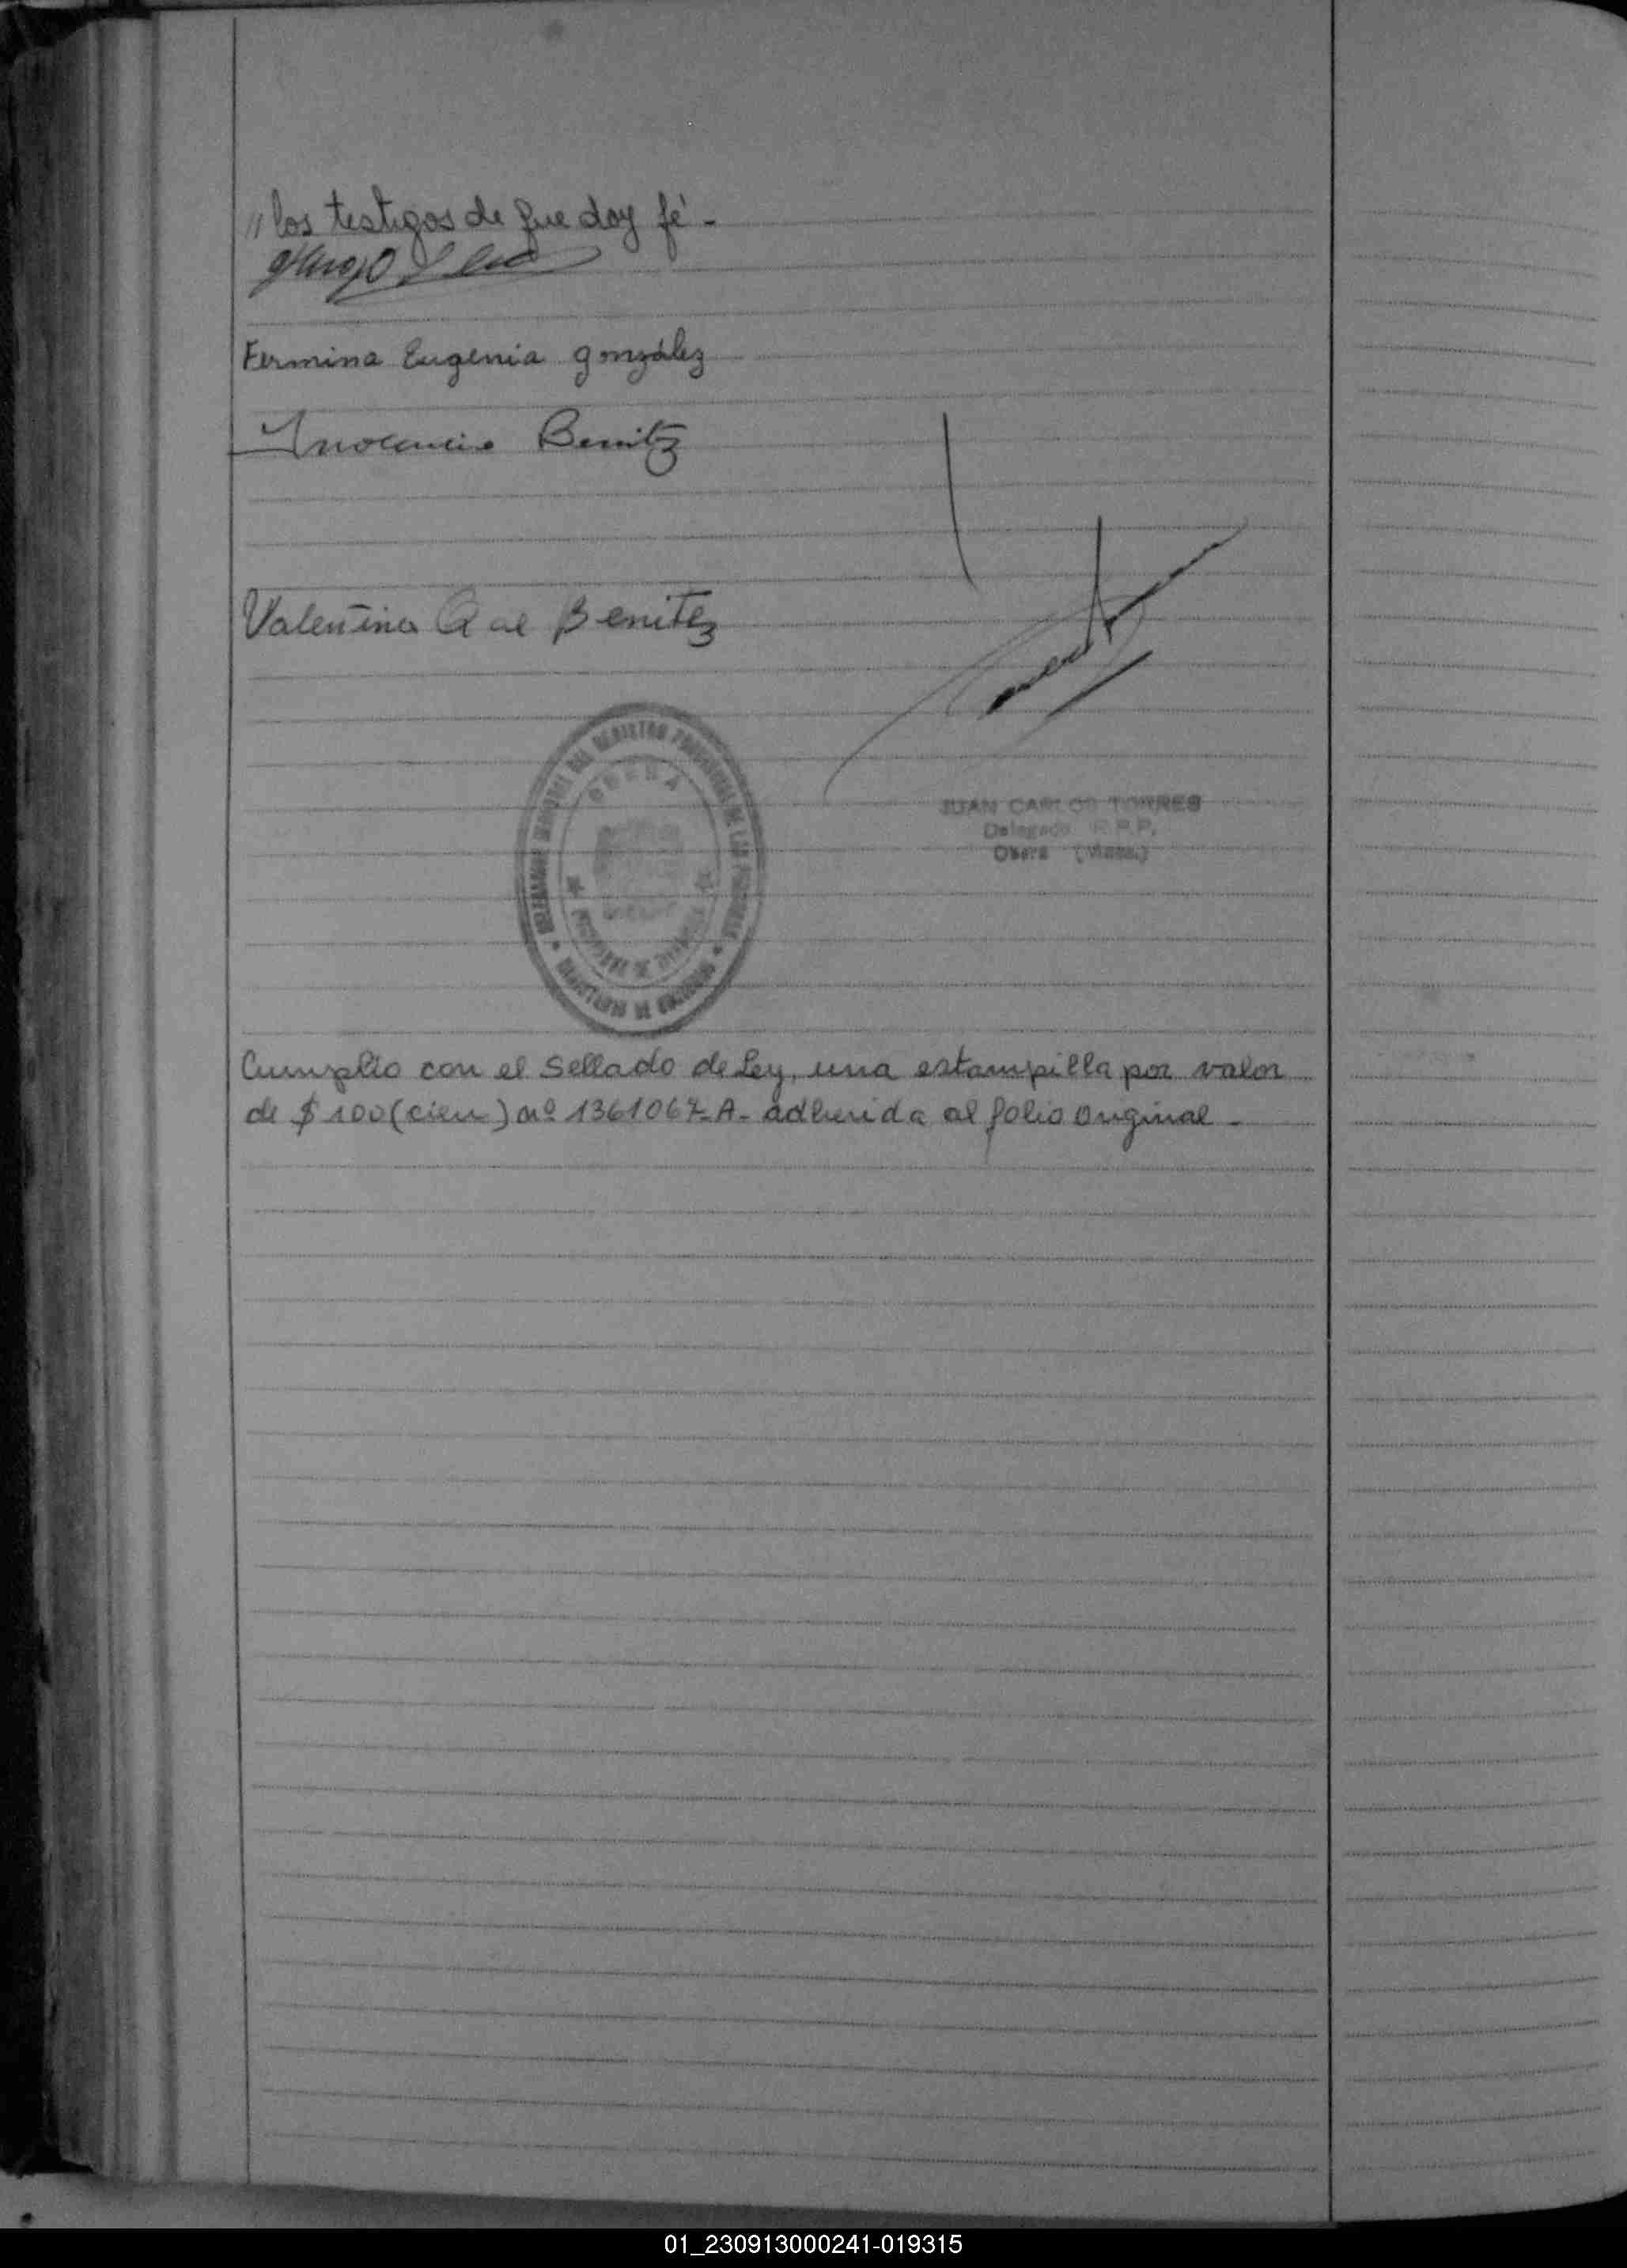 "los testigos de que doy fé -
Hugo
Fermina Eugenia gonzález
Inocencio Benitez
Valentina de Benitez
OBERA
JUAN CARLOS TORRES
Delegado R.P.P.
Oberá (Mnes.)
Cumplio con el Sellado de Ley, una estampilla por valor
de $ 100 (cien) nº 1361067-A- adherida al folio original -
01_230913000241-019315